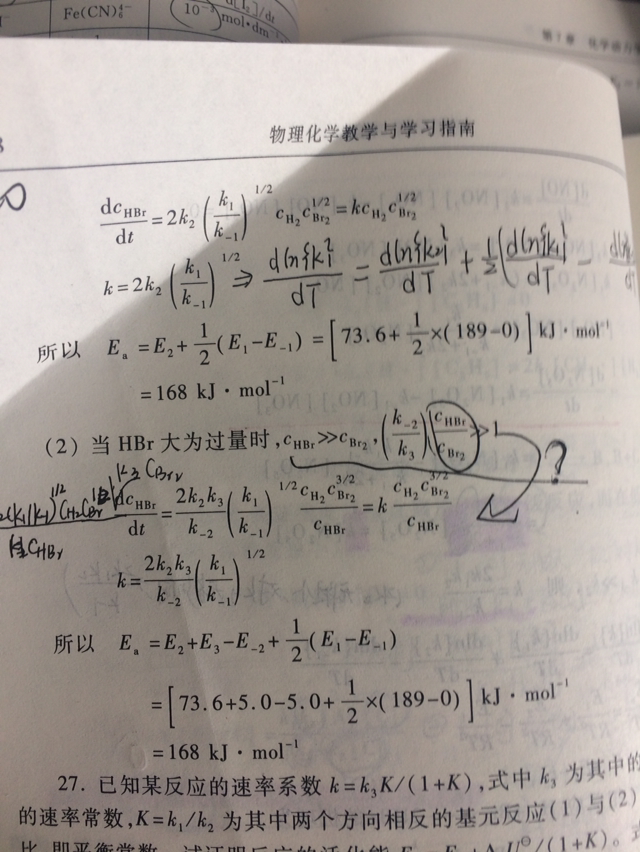 Fe(CN)₆⁴⁻
10⁻³
mol·dm⁻
物理化学教学与学习指南
dc_HBr/dt = 2k₂(k₁/k₋₁)^1/2 c_H₂ c_Br₂^1/2 = kc_H₂ c_Br₂^1/2
k = 2k₂(k₁/k₋₁)^1/2 ⇒ dln{k}/dT = dln{k₂}/dT + 1/2(dln{k₁}/dT −
所以 Eₐ = E₂ + 1/2(E₁ − E₋₁) = [73.6 + 1/2 × (189 − 0)] kJ·mol⁻¹
= 168 kJ·mol⁻¹
(2) 当 HBr 大为过量时, c_HBr ≫ c_Br₂, (k₋₂/k₃)(c_HBr/c_Br₂) ≫ 1 ?
dc_HBr/dt = 2k₂k₃/k₋₂ (k₁/k₋₁)^1/2 c_H₂ c_Br₂^3/2/c_HBr = k c_H₂ c_Br₂^3/2/c_HBr
k = 2k₂k₃/k₋₂ (k₁/k₋₁)^1/2
所以 Eₐ = E₂ + E₃ − E₋₂ + 1/2(E₁ − E₋₁)
= [73.6 + 5.0 − 5.0 + 1/2 × (189 − 0)] kJ·mol⁻¹
= 168 kJ·mol⁻¹
27. 已知某反应的速率系数 k = k₃K/(1+K), 式中 k₃ 为其中的
的速率常数, K = k₁/k₂ 为其中两个方向相反的基元反应(1)与(2)